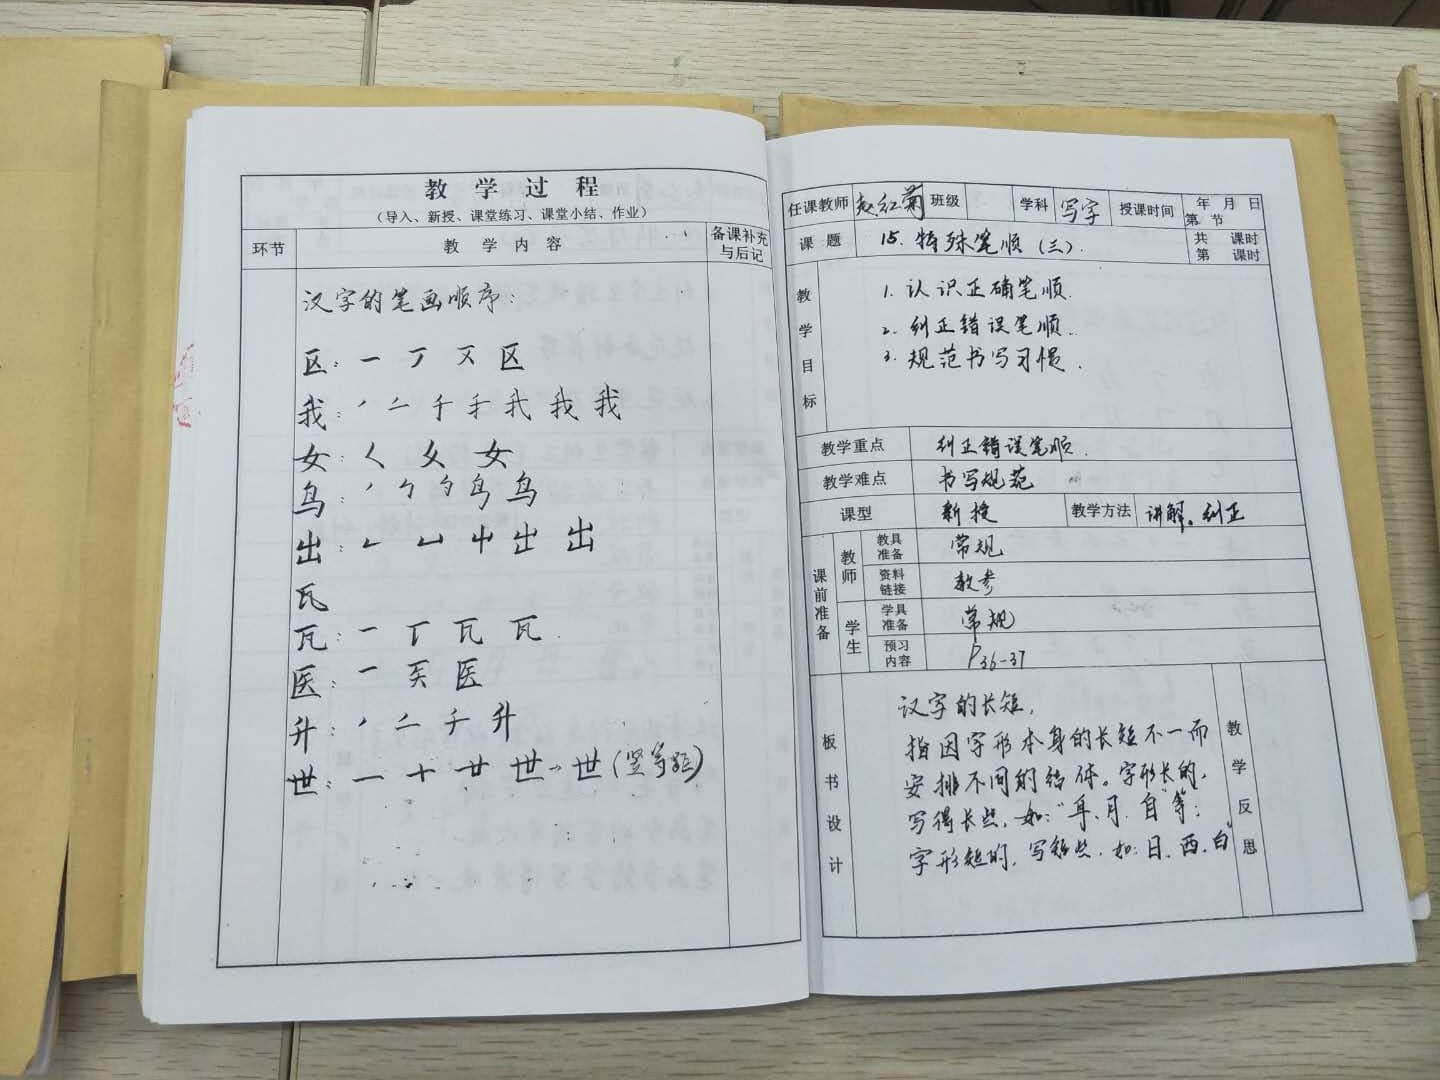 教学过程
（导入、新授、课堂练习、课堂小结、作业）
环节 教学内容 备课补充与后记
汉字的笔画顺序：
区：一 丆 㐅 区
我：丿 二 千 手 我 我 我
女：く 女 女
鸟：丿 鸟 鸟
出：ㄴ 凵 屮 出 出
瓦
瓦：一 瓦 瓦
医：一 医 医
升：丿 二 千 升
世：一 十 廿 世→世（竖等距）
任课教师 赵红菊 班级 学科 写字 授课时间 年 月 日 第 节
课题 15.特殊笔顺（三）. 共 课时 第 课时
教学目标
1.认识正确笔顺.
2.纠正错误笔顺.
3.规范书写习惯.
教学重点 纠正错误笔顺.
教学难点 书写规范
课型 新授 教学方法 讲解。纠正
课前准备
教师 教具准备 常规
资料链接 教参
学生 学具准备 常规
预习内容 P36-37
板书设计
汉字的长短，
指因字形本身的长短不一而
安排不同的结体。字形长的，
写得长些，如：“耳、月、自”等；
字形短的，写短些，如：日、西、白
教学反思